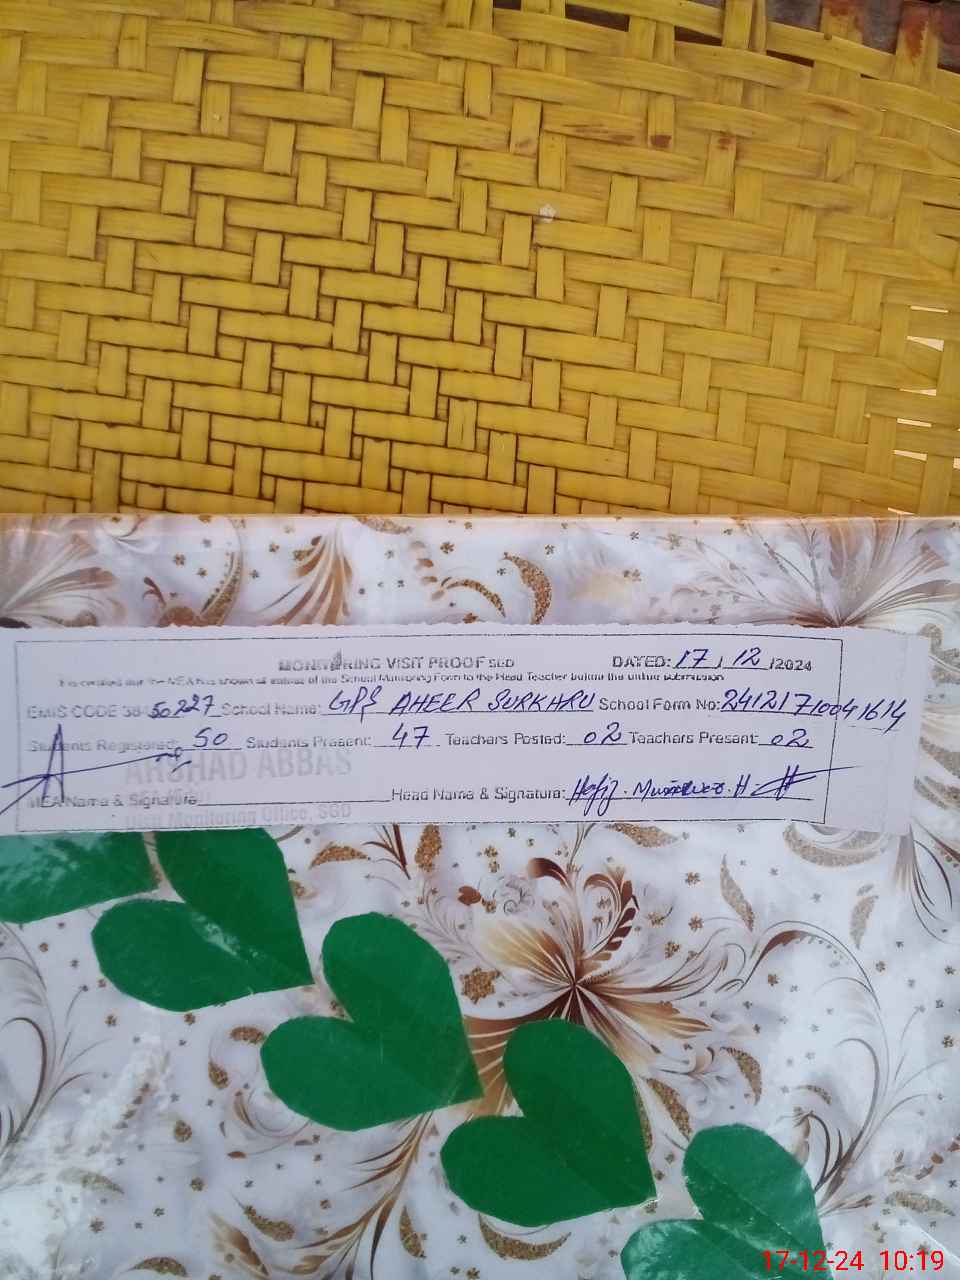 MONITORING VISIT PROOF SGD DATED: 17/12/2024
It is certified that the MEA has shown all entries of the School Monitoring Form to the Head Teacher before the online submission
EMIS CODE 384 50227 School Name: GPS AHEER SURKHRU School Form No: 2412171004 1614
Students Registered: 50 Students Present: 47 Teachers Posted: 02 Teachers Present: 02
ARSHAD ABBAS
MEA Name & Signature Head Name & Signature: Hafiz . H
Monitoring Office, SGD
17-12-24 10:19